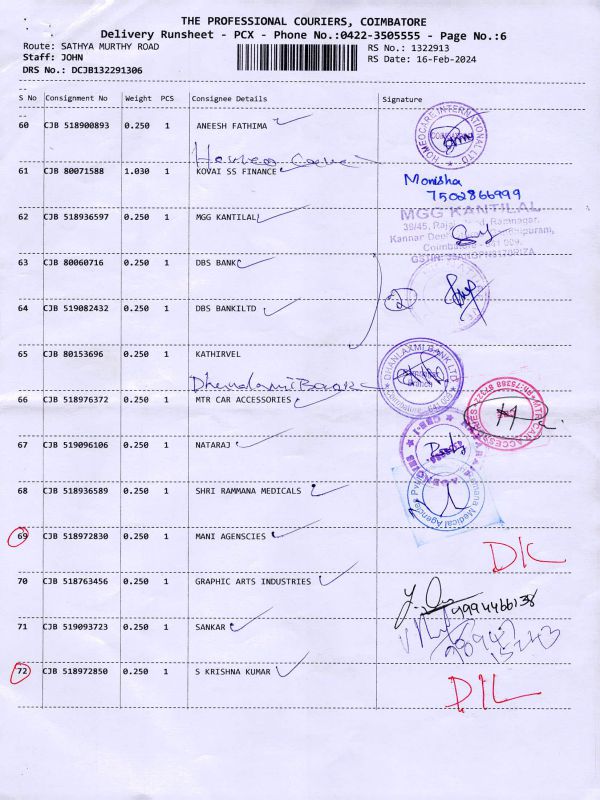 THE PROFESSIONAL COURIERS, COIMBATORE
Delivery Runsheet - PCX - Phone No.:0422-3505555 - Page No.:6
Route: SATHYA MURTHY ROAD RS No.: 1322913
Staff: JOHN RS Date: 16-Feb-2024
DRS No.: DCJB132291306
S No Consignment No Weight PCS Consignee Details Signature
60 CJB 518900893 0.250 1 ANEESH FATHIMA
HOMEOCARE INTERNATIONAL
61 CJB 80071588 1.030 1 KOVAI SS FINANCE
Monisha
7502866999
62 CJB 518936597 0.250 1 MGG KANTILAL
MGG KANTILAL
63 CJB 80060716 0.250 1 DBS BANK
64 CJB 519082432 0.250 1 DBS BANKILTD
2
65 CJB 80153696 0.250 1 KATHIRVEL
DHANLAXMI BANK LTD
66 CJB 518976372 0.250 1 MTR CAR ACCESSORIES
MTR CAR ACCESSORIES
67 CJB 519096106 0.250 1 NATARAJ
68 CJB 518936589 0.250 1 SHRI RAMMANA MEDICALS
69 CJB 518972830 0.250 1 MANI AGENSCIES
70 CJB 518763456 0.250 1 GRAPHIC ARTS INDUSTRIES
71 CJB 519093723 0.250 1 SANKAR
72 CJB 518972850 0.250 1 S KRISHNA KUMAR